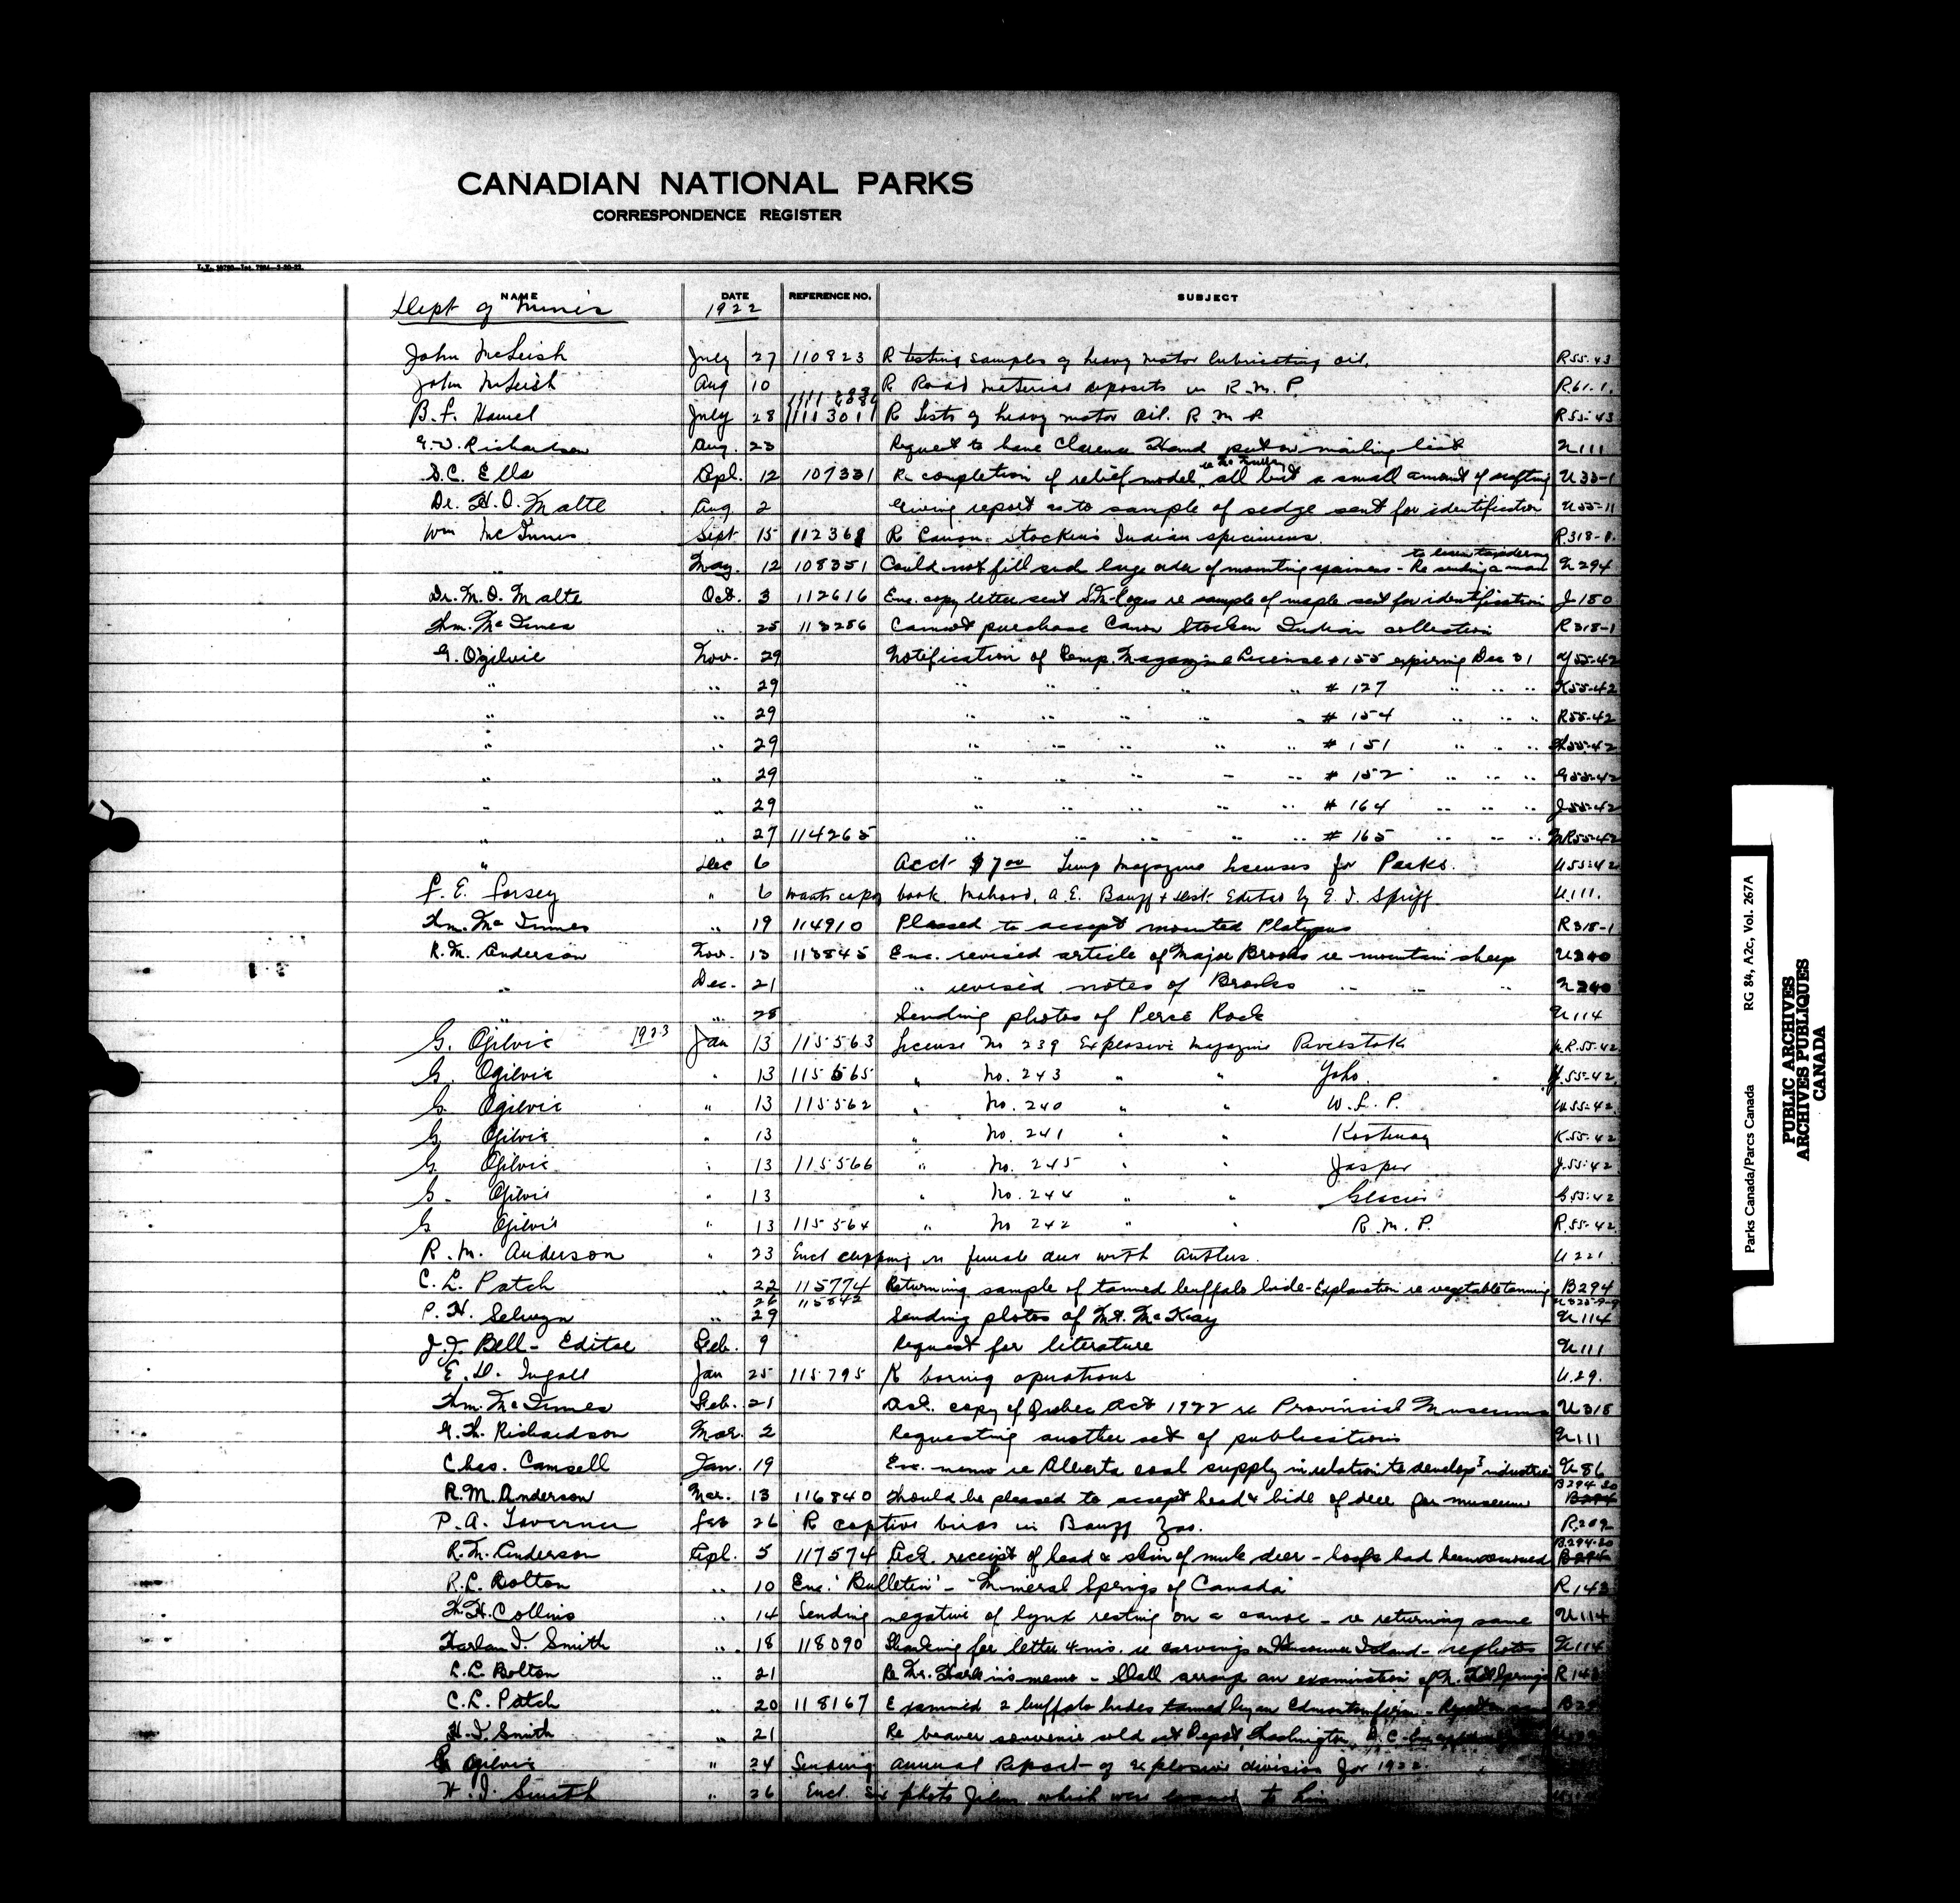 CANADIAN NATIONAL PARKS
CORRESPONDENCE REGISTER
NAME DATE REFERENCE NO. SUBJECT
Dept of Mines 1922
John McLeish July 27 110823 R testing samples of heavy motor lubricating oil. R55-43
John McLeish Aug 10 R Road material deposits in R.M.P. R61.1.
B.F. Haanel July 28 113011 R Tests of heavy motor oil. R M P R55-43
G.W. Richardson Aug. 23 Request to have Clarence Hand put on mailing list U111
S.C. Ells Apl. 12 107331 Re completion of relief model all but a small amount of U33-1
Dr. M.O. Malte Aug 2 Giving report as to sample of sedge sent for identification U55-11
Wm McInnes Sept 15 112368 R Canon Stocken's Indian specimens. R318-1.
" May. 12 108351 Could not fill such large order of mounting specimens - Re sending a man to learn taxidermy U294
Dr. M.O. Malte Oct. 3 112616 Enc. copy letter sent re sample of maple sent for identification J-180
Wm. McInnes " 25 113256 Cannot purchase Canon Stocken Indian collection R318-1
G. Ogilvie Nov. 29 Notification of Temp. Magazine License #155 expiring Dec 31 Y55-42
" " 29 " " " " # 127 " " " K55-42
" " 29 " " " " " # 154 " " " R55-42
" " 29 " " " " " # 151 " " " 55-42
" " 29 " " " " " # 152 " " " G55-42
" " 29 " " " " " # 164 " " " J55-42
" " 27 114265 " " " " " # 165 " " " MR55-42
" Dec 6 Acct $7.00 Temp Magazine licenses for Parks. U55-42
F.E. Forsey " 6 Wants copy book. Mahood, A.E. Banff & Dist. Edited by E.J. U.111.
Wm. McInnes " 19 114910 Pleased to accept mounted Platypus R318-1
R.M. Anderson Nov. 13 113845 Enc. revised article of Major Brooks re mountain sheep U240
" Dec. 21 " revised notes of Brooks " " " U240
" " 28 Sending photos of Perce Rock U114
G. Ogilvie 1923 Jan 13 115563 License No 239 Explosive Magazine Revelstoke M.R.55-42
G. Ogilvie " 13 115565 " No. 243 " " Yoho. Y.55-42
G. Ogilvie " 13 115562 " No. 240 " " W.L.P. W.55-42.
G. Ogilvie " 13 " No. 241 " " Kootenay K.55-42
G. Ogilvie " 13 115566 " No. 245 " " Jasper J.55-42
G. Ogilvie " 13 " No. 244 " " Glacier G.55-42
G Ogilvie " 13 115564 " No 242 " " R.M.P. R.55-42.
R.M. Anderson " 23 Encl clipping re female deer with antlers. U221
C.L. Patch " 22 115774 Returning sample of tanned buffalo hide - Explanation re vegetable tanning B294
26 115842
P.H. Selwyn " 29 Sending photos of Mt. McKay U114
J.J. Bell - Editor Feb. 9 Request for literature U111
E.D. Ingall Jan 25 115795 R boring operations U.29.
Wm. McInnes Feb. 21 Ack. copy of Quebec Act 1922 re Provincial Museums U318
G.W. Richardson Mar. 2 Requesting another set of publications U111
Chas. Camsell Jan. 19 Enc. memo re Alberta coal supply in relation to develop industries U86
R.M. Anderson Mar. 13 116840 Should be pleased to accept head & hide of deer for museum B294-20 B294
P.A. Taverner Feb 26 R captive birds in Banff Zoo. R.209
R.M. Anderson Apl. 5 117574 Ack. receipt of head & skin of mule deer - hoofs had been removed B294-20 B294
R.L. Bolton " 10 Enc. 'Bulletin' - "Mineral Springs of Canada" R143
W.H. Collins " 14 Sending negative of lynx resting on a canoe - re returning same U114
Harlan I. Smith " 18 118090 Thanking for letter & ms. re carvings on Vancouver Island - re photos U114
L.L. Bolton " 21 Re Mr. Harkin's memo - Shall arrange an examination of Springs R143
C.L. Patch " 20 118167 Examined 2 buffalo hides tanned by an Edmonton firm -
H.I. Smith " 21 Re beaver souvenir sold at Depot, Washington, D.C.
G Ogilvie " 24 Sending annual Report of explosive division for 1922.
H.I. Smith " 26 Encl. six photo films which were loaned to him
Parks Canada/Parcs Canada RG 84, A2c, Vol. 267A
PUBLIC ARCHIVES
ARCHIVES PUBLIQUES
CANADA